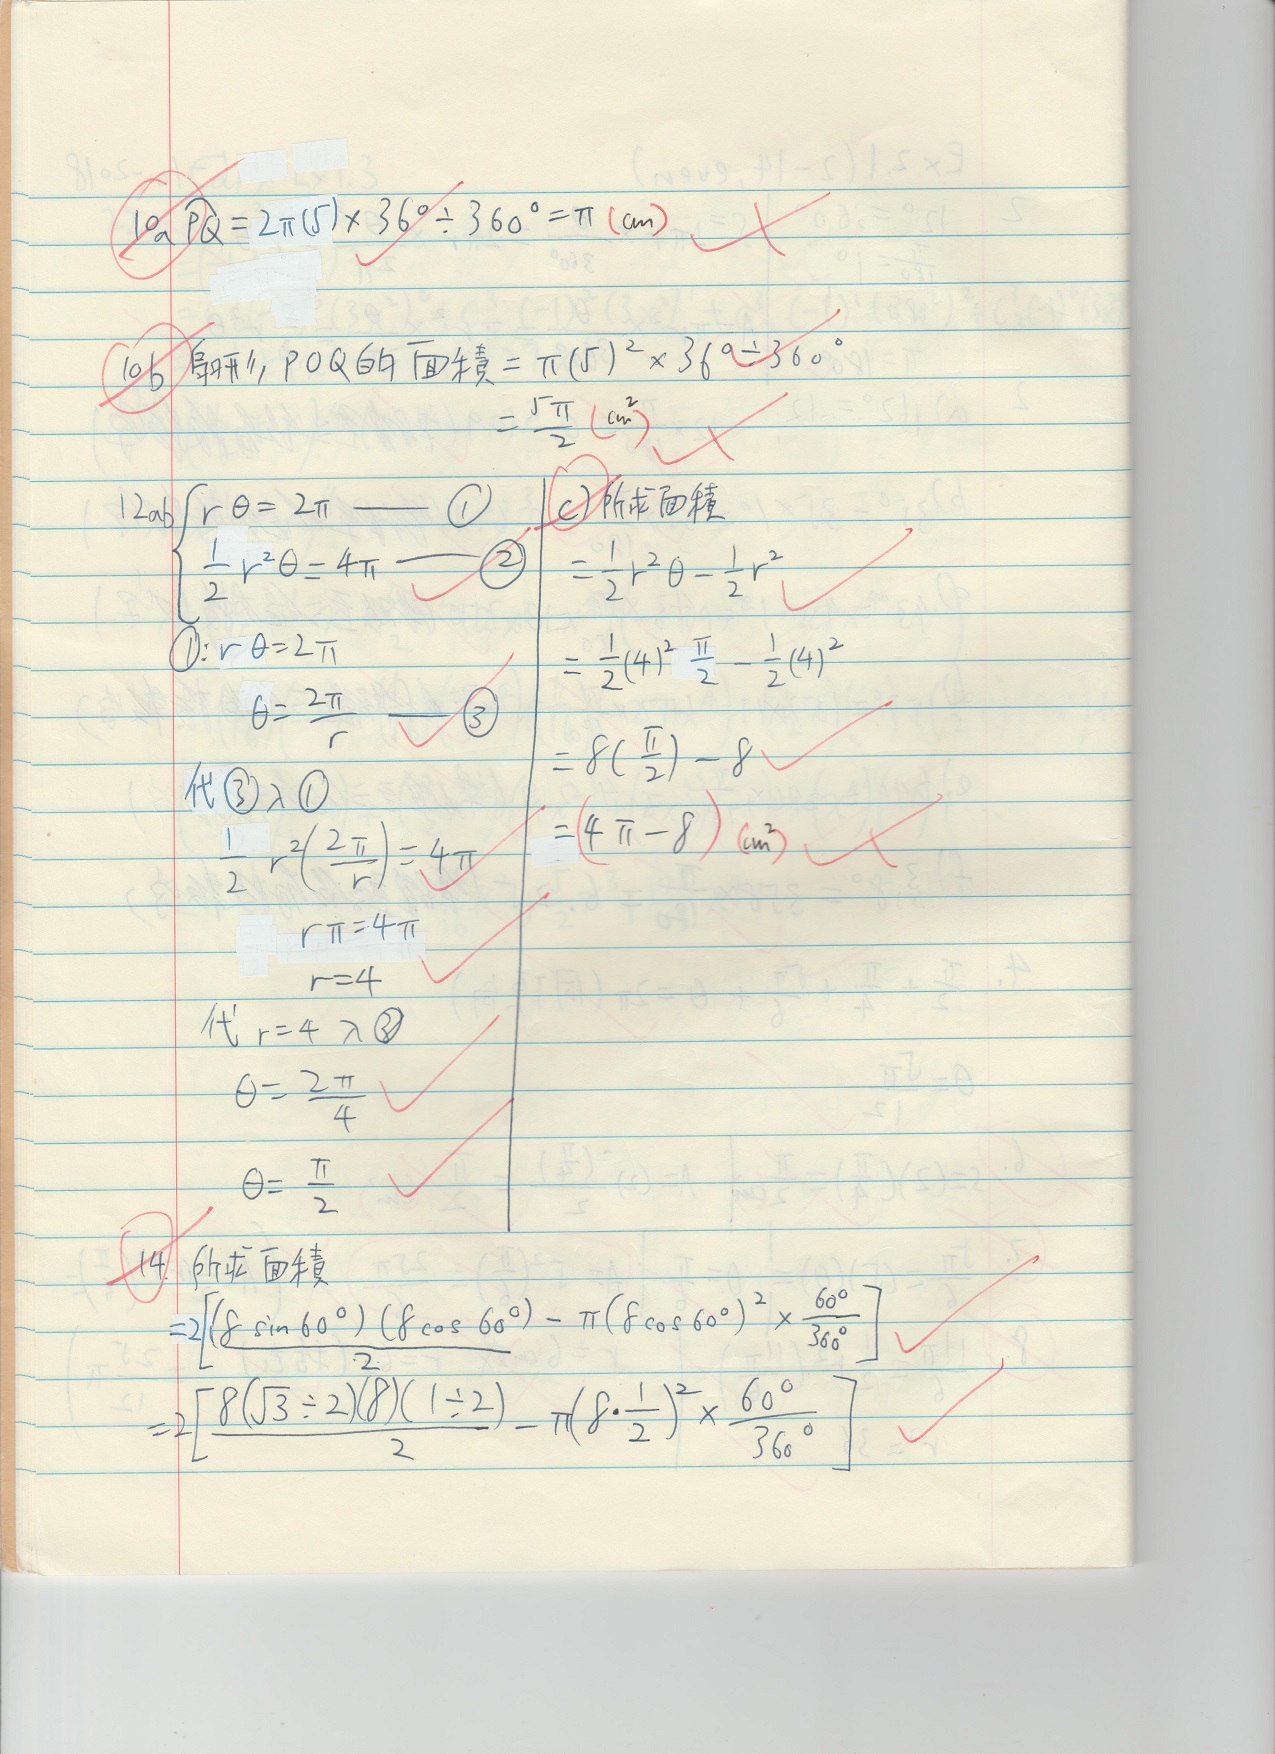 10a PQ = 2π(5) × 36° ÷ 360° = π (cm)
10b 扇形 POQ的面積 = π(5)² × 36° ÷ 360°
= 5π/2 (cm²)
12ab { rθ = 2π —— ①
1/2 r²θ = 4π —— ②
①: rθ = 2π
θ = 2π/r —— ③
代③入①
1/2 r²(2π/r) = 4π
rπ = 4π
r = 4
代 r = 4 入③
θ = 2π/4
θ = π/2
c) 所求面積
= 1/2 r²θ − 1/2 r²
= 1/2 (4)² π/2 − 1/2 (4)²
= 8(π/2) − 8
= (4π − 8) (cm²)
14. 所求面積
= 2[(8 sin 60°)(8 cos 60°)/2 − π(8 cos 60°)² × 60°/360°]
= 2[8(√3 ÷ 2)(8)(1 ÷ 2)/2 − π(8 · 1/2)² × 60°/360°]